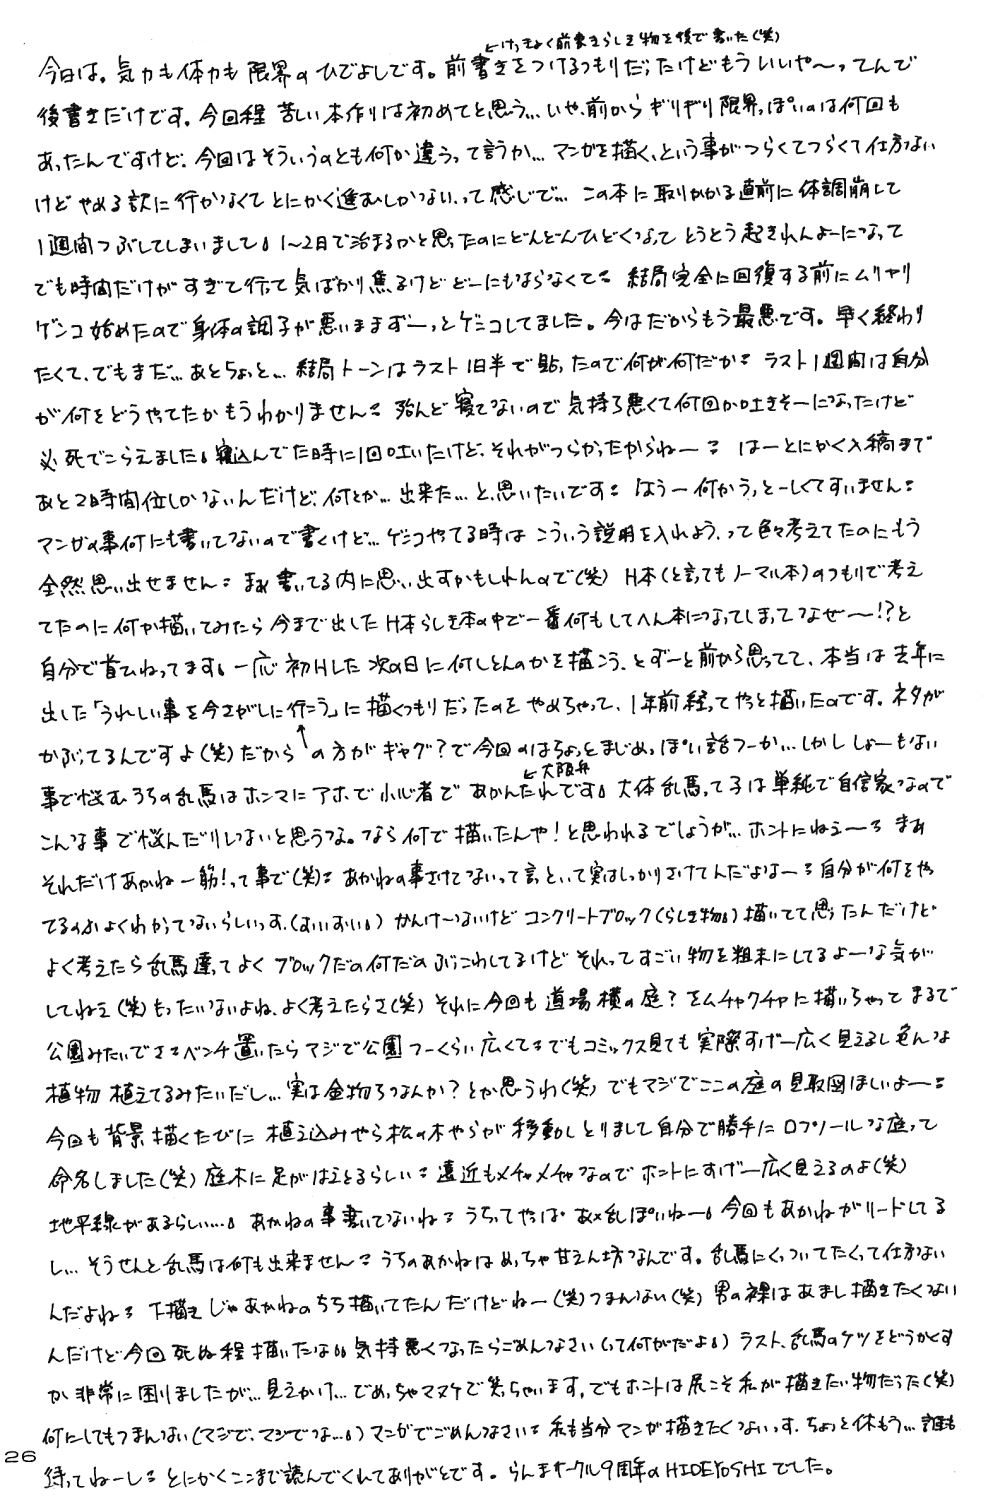 ←けっきょく前書きらしき物を後で書いた(笑)
今日は。気力も体力も限界のひでよしです。前書きをつけるつもりだったけどもういいや〜ってんで
後書きだけです。今回程苦しい本作りは初めてと思う… いや、前からギリギリ限界っぽいのは何回も
あったんですけど、今回はそういうのとも何か違うって言うか… マンガを描く、という事がつらくてつらくて仕方ない
けどやめる訳に行かなくてとにかく進むしかないって感じで… この本に取りかかる直前に体調崩して
1週間つぶしてしまいまして。1〜2日で治まるかと思ったのにどんどんひどくなって とうとう起きれんよーになって
でも時間だけがすぎて行って気ばかり焦るけどどーにもならなくて 結局完全に回復する前にムリヤリ
ゲンコ始めたので身体の調子が悪いままずーっとゲンコしてました。今はだからもう最悪です。早く終わり
たくて、でもまだ… あとちょっと… 結局トーンはラスト1日半で貼ったので何が何だか ラスト1週間は自分
が何をどうやってたかもうわかりません 殆んど寝てないので気持ち悪くて何回か吐きそーになったけど
必死でこらえました。寝込んでた時に1回吐いたけど、それがつらかったからねー はーとにかく入稿まで
あと2時間位しかないんだけど、何とか… 出来た… と、思いたいです はうー何かうっとーしくてすいません
マンガの事何にも書いてないので書くけど… ゲンコやってる時はこういう説明を入れよう、って色々考えてたのにもう
全然思い出せません まぁ書いてる内に思い出すかもしれんので(笑) H本(と言ってもノーマル本)のつもりで考え
てたのに何か描いてみたら今まで出したH本らしき本の中で一番何もしてへん本になってしまってなぜ〜!?と
自分で首ひねってます。一応初Hした次の日に何しとんのかを描こう、とずーと前から思ってて、本当は去年に
出した「うれしい事を今さがしに行こう」に描くつもりだったのをやめちゃって、1年前経ってやっと描いたのです。ネタが
かぶってるんですよ(笑)だから↑の方がギャグ?で今回のはちょっとまじめっぽい話つーか… しかししょーもない
←大阪弁
事で悩むうちの乱馬はホンマにアホで小心者であかんたれです。大体乱馬って子は単純で自信家なので
こんな事で悩んだりしないと思うな。なら何で描いたんや!と思われるでしょうが… ホントにねぇー まぁ
それだけあかね一筋!って事で(笑) あかねの事さけてないって言っといて実はしっかりさけてんだよなー 自分が何をやっ
てるのかよくわかってないらしいっす、(おいおい) かんけーないけどコンクリートブロック(らしき物)描いてて思ったんだけど
よく考えたら乱馬達ってよくブロックだの何だのぶっこわしてるけどそれってすごい物を粗末にしてるよーな気が
してねぇ(笑)もったいないよね、よく考えたらさ(笑) それに今回も道場横の庭?をムチャクチャに描いちゃって まるで
公園みたいでさ ベンチ置いたらマジで公園つーくらい広くて でもコミックス見ても実際すげー広く見えるし色んな
植物植えてるみたいだし… 実は金物ちなんか?とか思うわ(笑) でもマジでここの庭の見取図ほしいよー
今回も背景描くたびに植え込みやら松の木やらが移動しとりまして自分で勝手にロプノールな庭って
命名しました(笑)庭木に足がはえとるらしい 遠近もメチャメチャなのでホントにすげー広く見えるのよ(笑)
地平線があるらしい… あかねの事書いてないね うちってやっぱあ×乱ぽいねー 今回もあかねがリードしてる
し… そうせんと乱馬は何も出来ません うちのあかねはめっちゃ甘えん坊なんです。乱馬にくっついてたくって仕方ない
んだよね 下描きじゃあかねのちち描いてたんだけどねー(笑)つまんない(笑) 男の裸はあまし描きたくない
んだけど今回死ぬ程描いたな 気持悪くなったらごめんなさい(って何がだよ) ラスト、乱馬のケツをどうかくす
か非常に困りましたが… 見えかけ… でめっちゃマヌケで笑っちゃいます、でもホントは尻こそ私が描きたい物だった(笑)
何にしてもつまんない(マジで、マジでな…)マンガでごめんなさい 私も当分マンガ描きたくないっす、ちょっと休もう… 誰も
待ってねーし とにかくここまで読んでくれてありがとです。らんまサークル9周年のHIDEYOSHIでした。
26